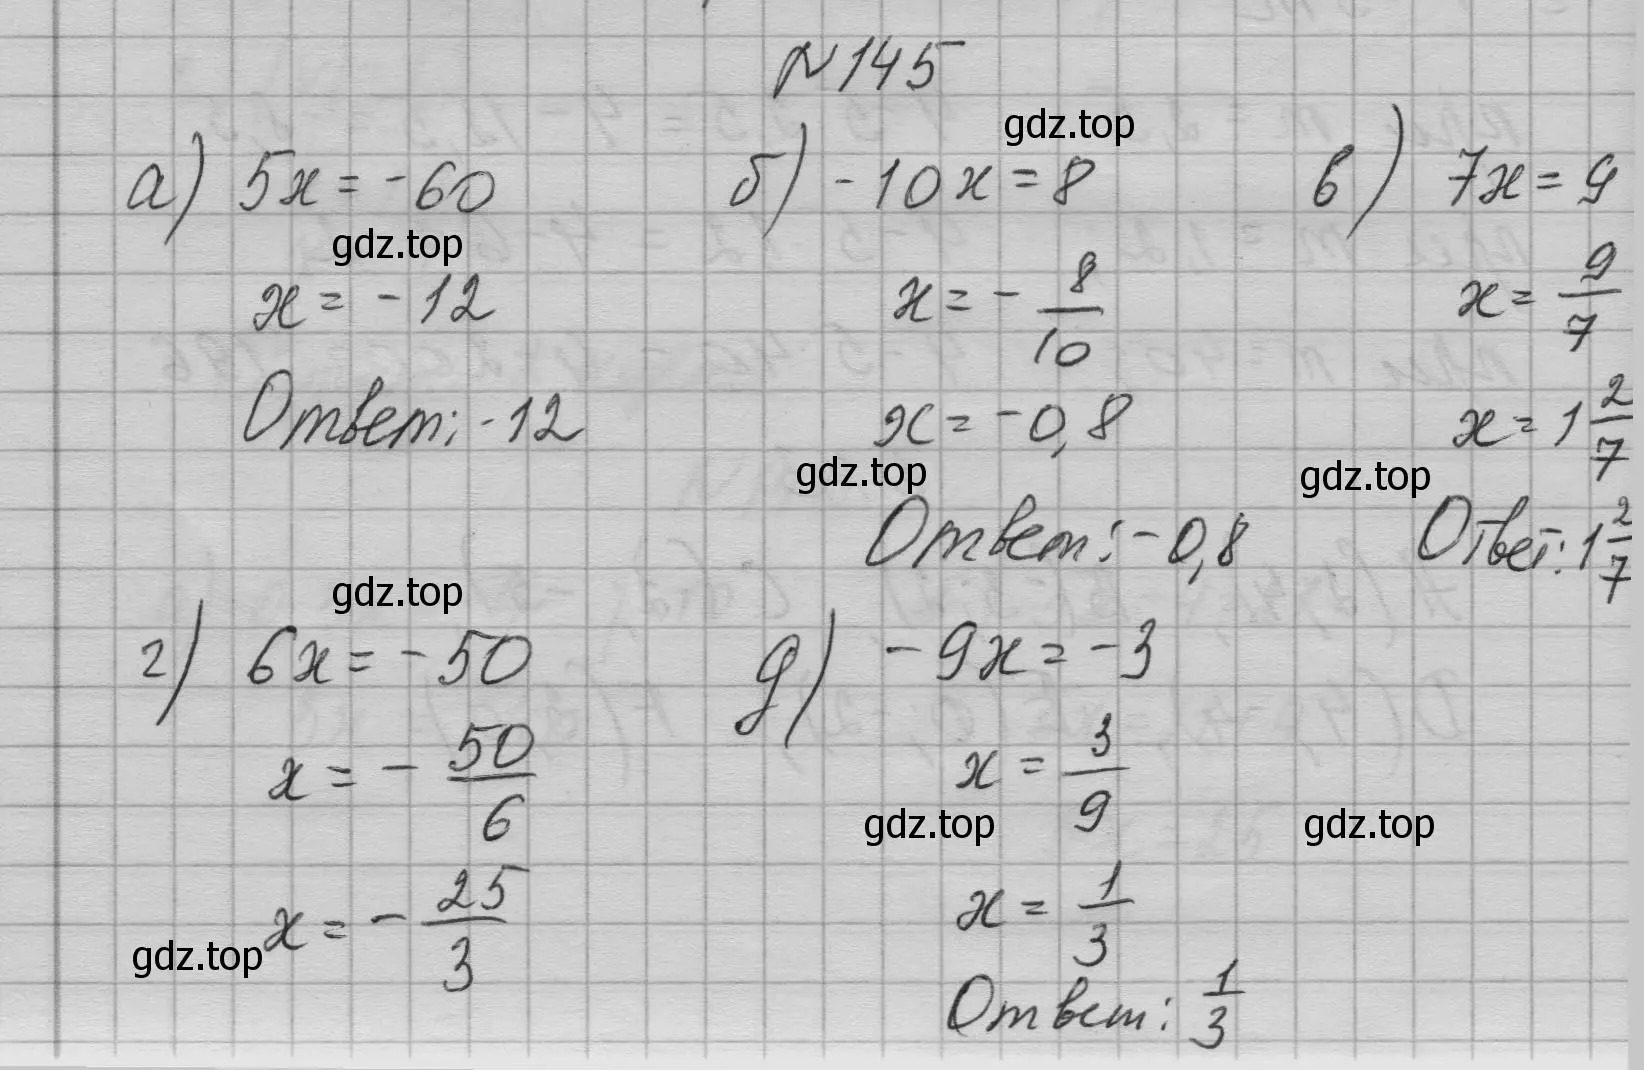 №145
а) 5x = -60
x = -12
Ответ: -12
б) -10x = 8
x = - 8/10
x = -0,8
Ответ: -0,8
в) 7x = 9
x = 9/7
x = 1 2/7
Ответ: 1 2/7
г) 6x = -50
x = - 50/6
x = - 25/3
д) -9x = -3
x = 3/9
x = 1/3
Ответ: 1/3
gdz.top
gdz.top
gdz.top
gdz.top
gdz.top
gdz.top
gdz.top
gdz.top